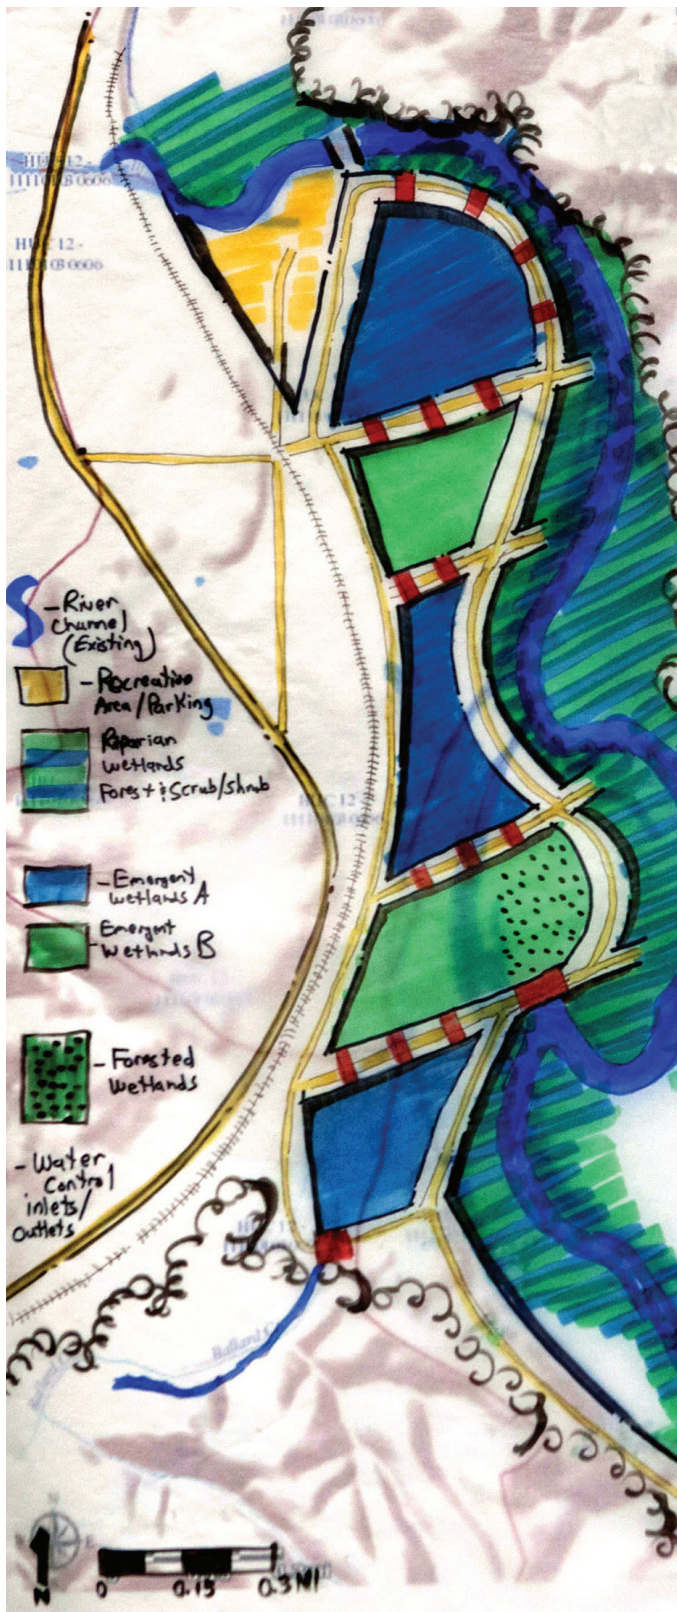 HUC12 -
111101030606
HUC12 -
111101030606
- River
Channel
(Existing)
- Recreation
Area/Parking
Riparian
Wetlands
Forest & Scrub/shrub
HUC12
- Emergent
Wetlands A
Emergent
Wetlands B
- Forested
Wetlands
- Water
Control
inlets/
Outlets
Ballard C
N
0 0.15 0.3 MI